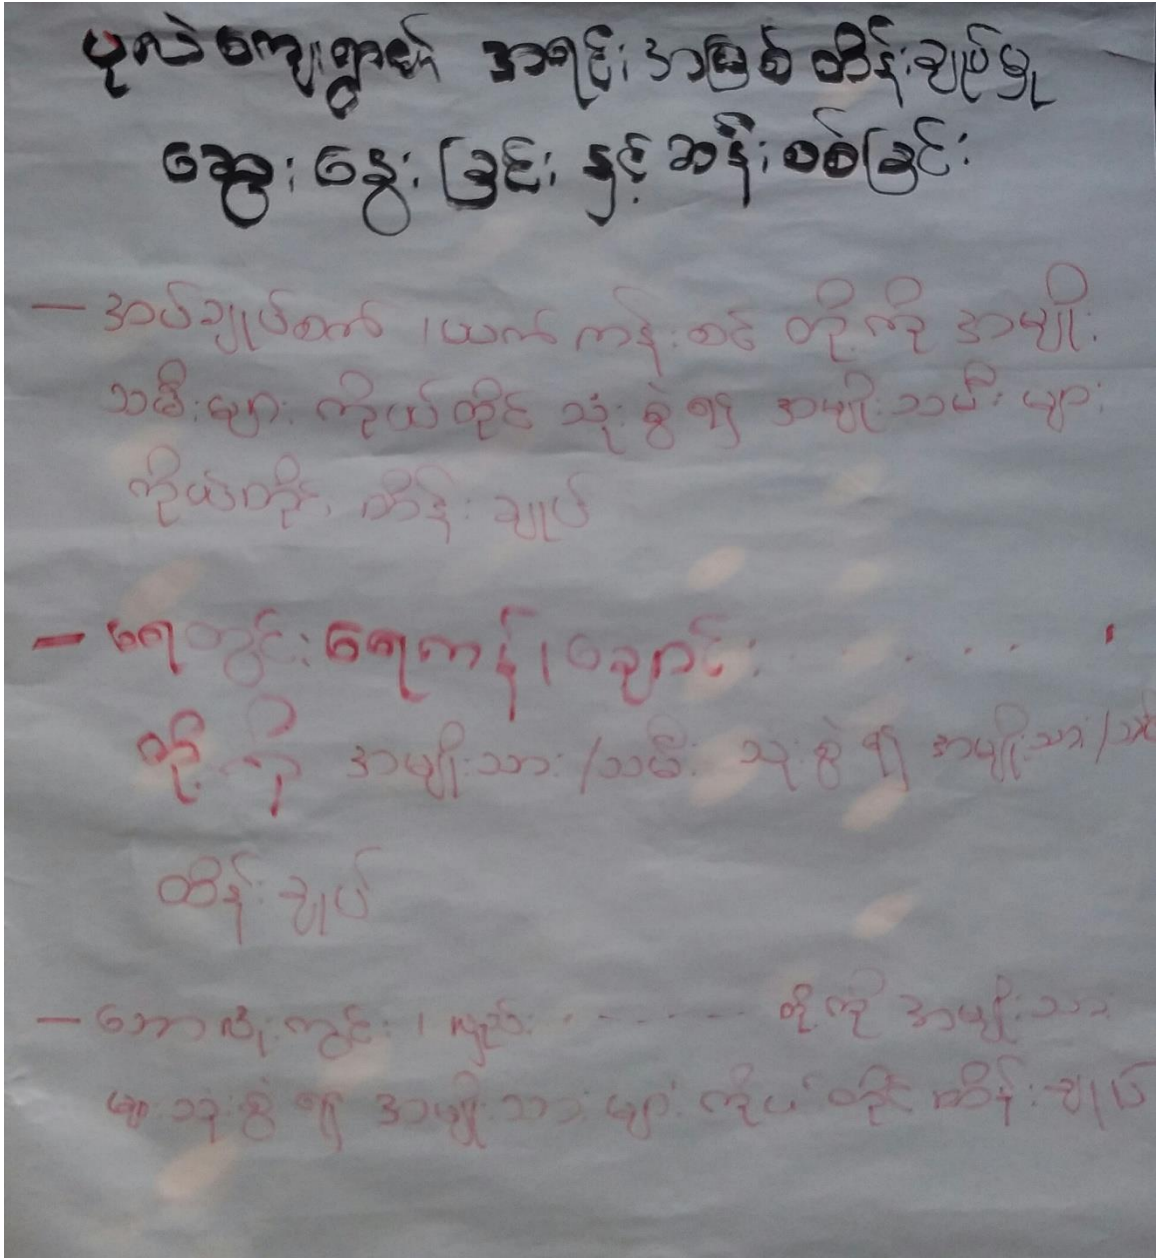 ပုလဲကျေးရွာ၏ အရင်းအမြစ်ထိန်းချုပ်မှု
ဆွေးနွေးခြင်းနှင့်ဆန်းစစ်ခြင်း
— အပ်ချုပ်စက် ၊ယက်ကန်းစင် တို့ကို အမျိုး
သမီးများ ကိုယ်တိုင် သုံးစွဲ၍ အမျိုးသမီးများ
ကိုယ်တိုင် ထိန်းချုပ်
— ရေတွင်း၊ ရေကန်၊ ချောင်း . . . . .
တို့ကို အမျိုးသား/သမီး သုံးစွဲ၍ အမျိုးသား/သမီး
ထိန်းချုပ်
— ဘောလုံးကွင်း ၊ လှည်း . - - - - - - တို့ကို အမျိုးသား
များ သုံးစွဲ၍ အမျိုးသားများ ကိုယ်တိုင် ထိန်းချုပ်